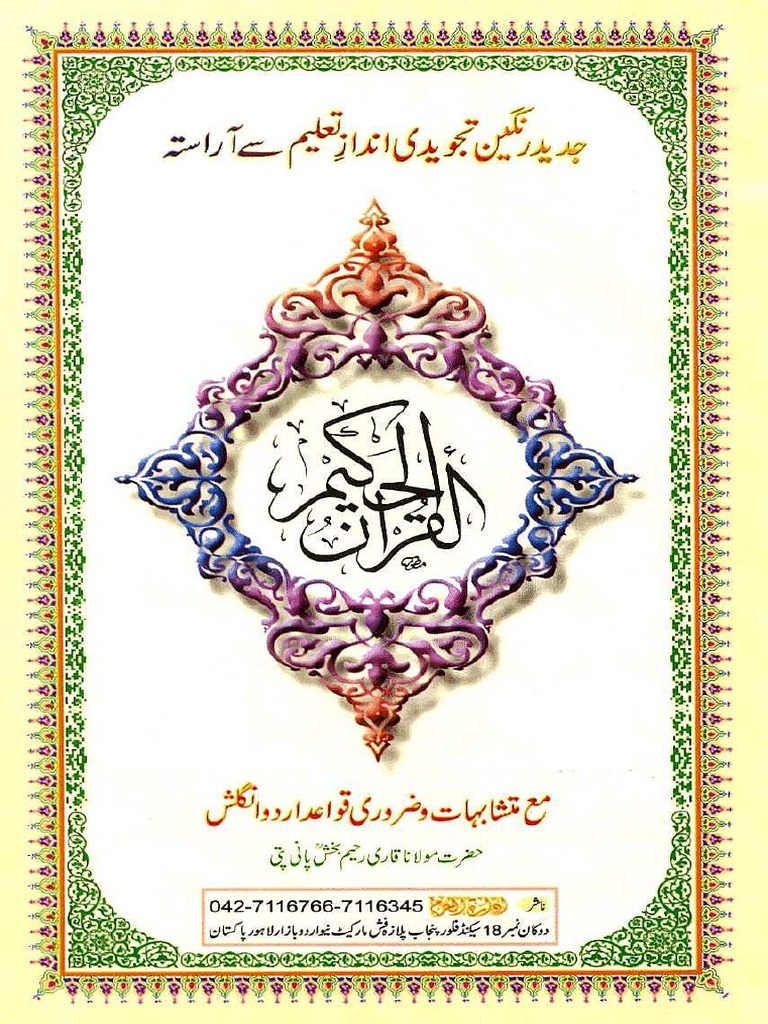 جدید رنگین تجویدی اندازِ تعلیم سے آراستہ
القرآن الحکیم
مع متشابہات و ضروری قواعد اردو انگلش
حضرت مولانا قاری رحیم بخشؒ پانی پتی
ناشر 042-7116766-7116345
دوکان نمبر 18 سیکنڈ فلور پنجاب پلازہ فش مارکیٹ نیو اردو بازار لاہور پاکستان